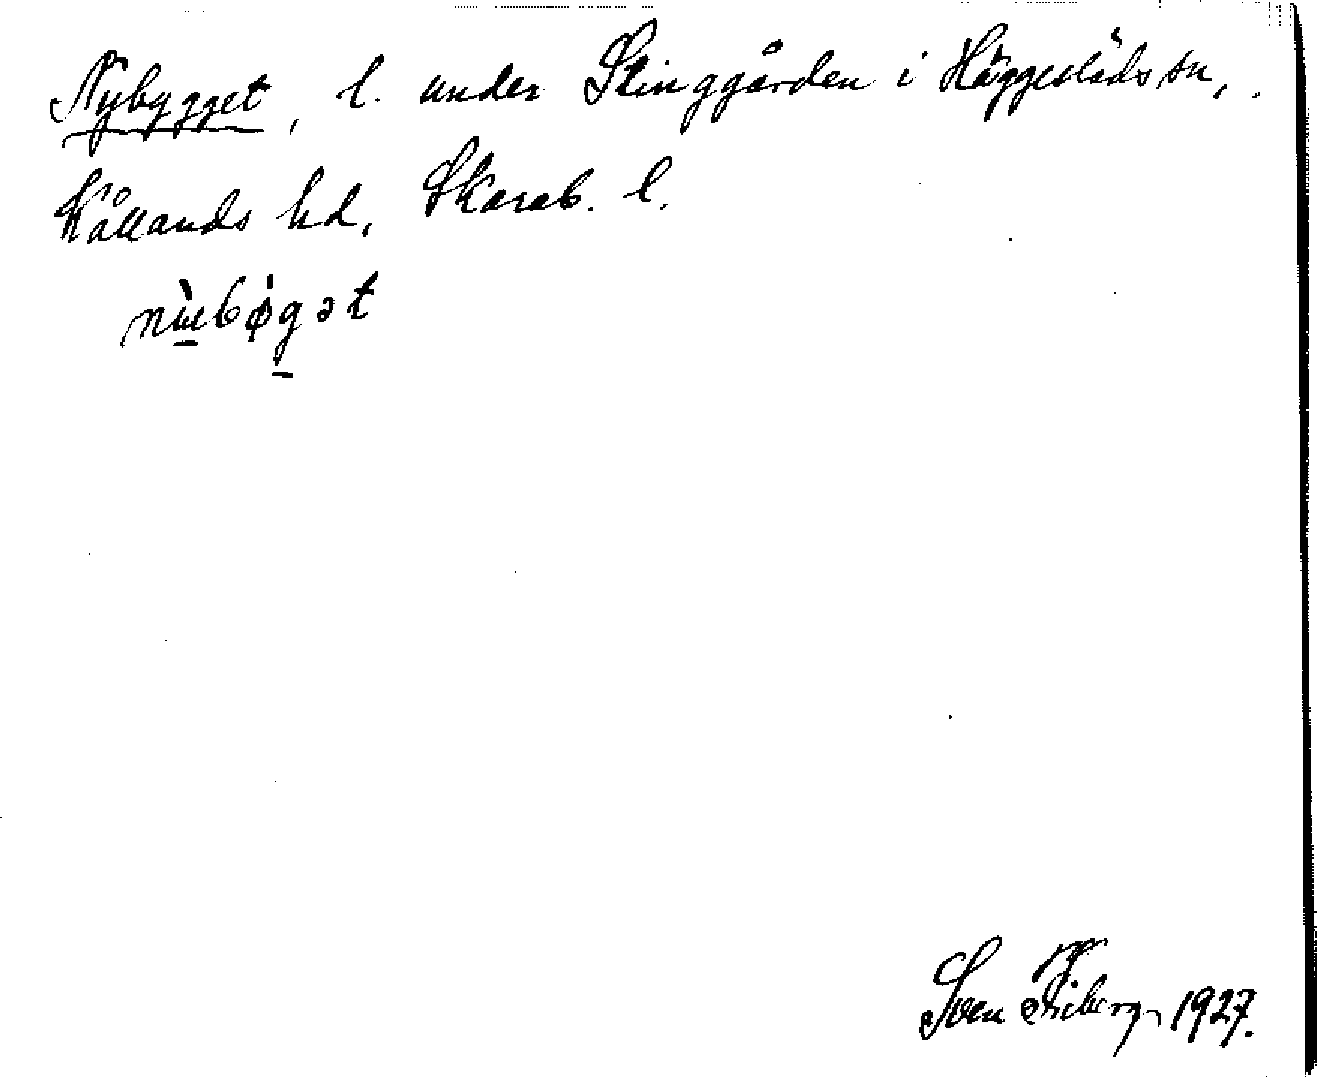 Nybygget, l. under Stinggården i Häggeslöds sn,
Kållands hd, Skarab. l.
Sven Fiberg 1927.